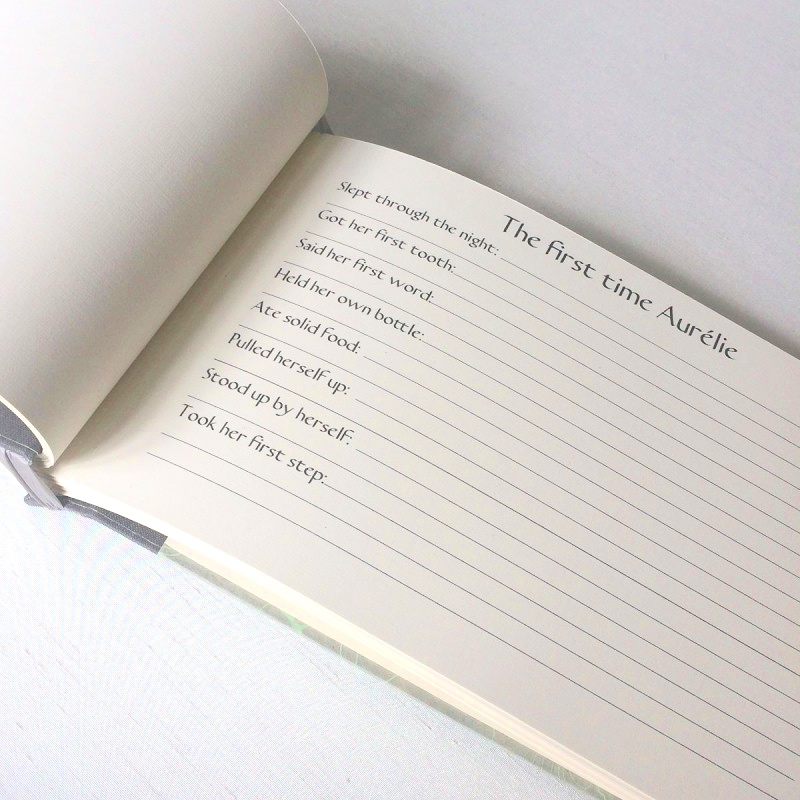 The first time Aurélie
Slept through the night:
Got her first tooth:
Said her first word:
Held her own bottle:
Ate solid food:
Pulled herself up:
Stood up by herself:
Took her first step: